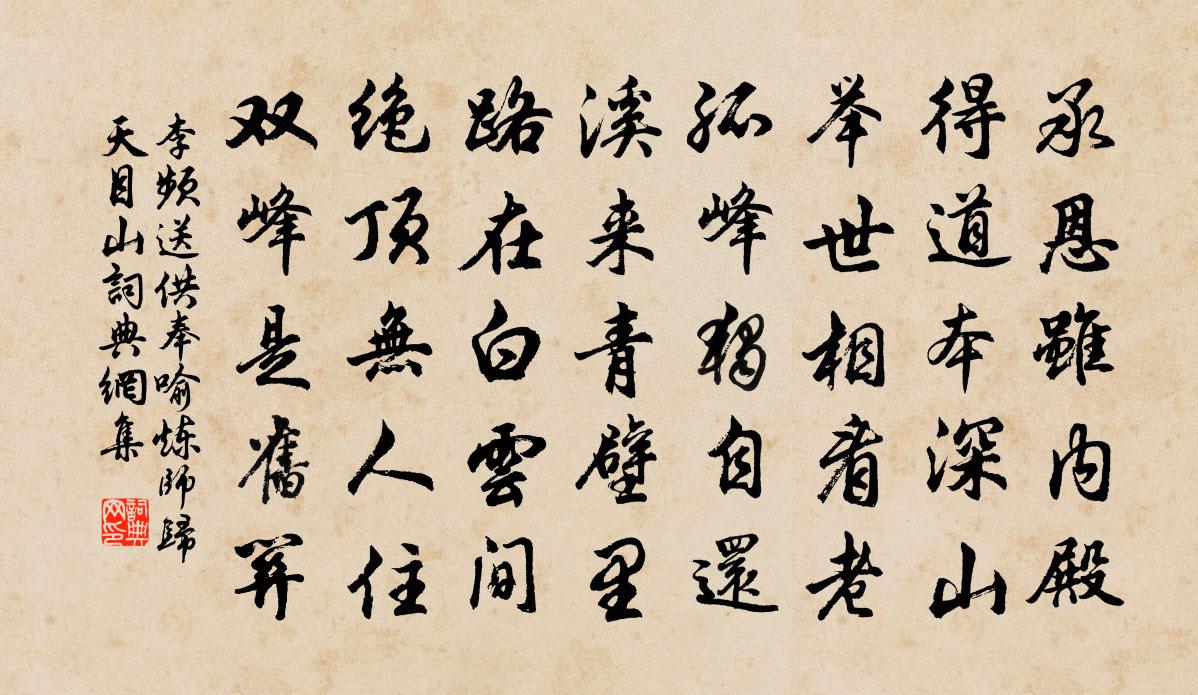 承恩雖内殿
得道本深山
举世相看老
孤峰獨自還
溪来青壁里
路在白雲间
绝頂無人住
双峰是舊關
李频送供奉喻炼師歸
天目山詞典網集
詞典
网印